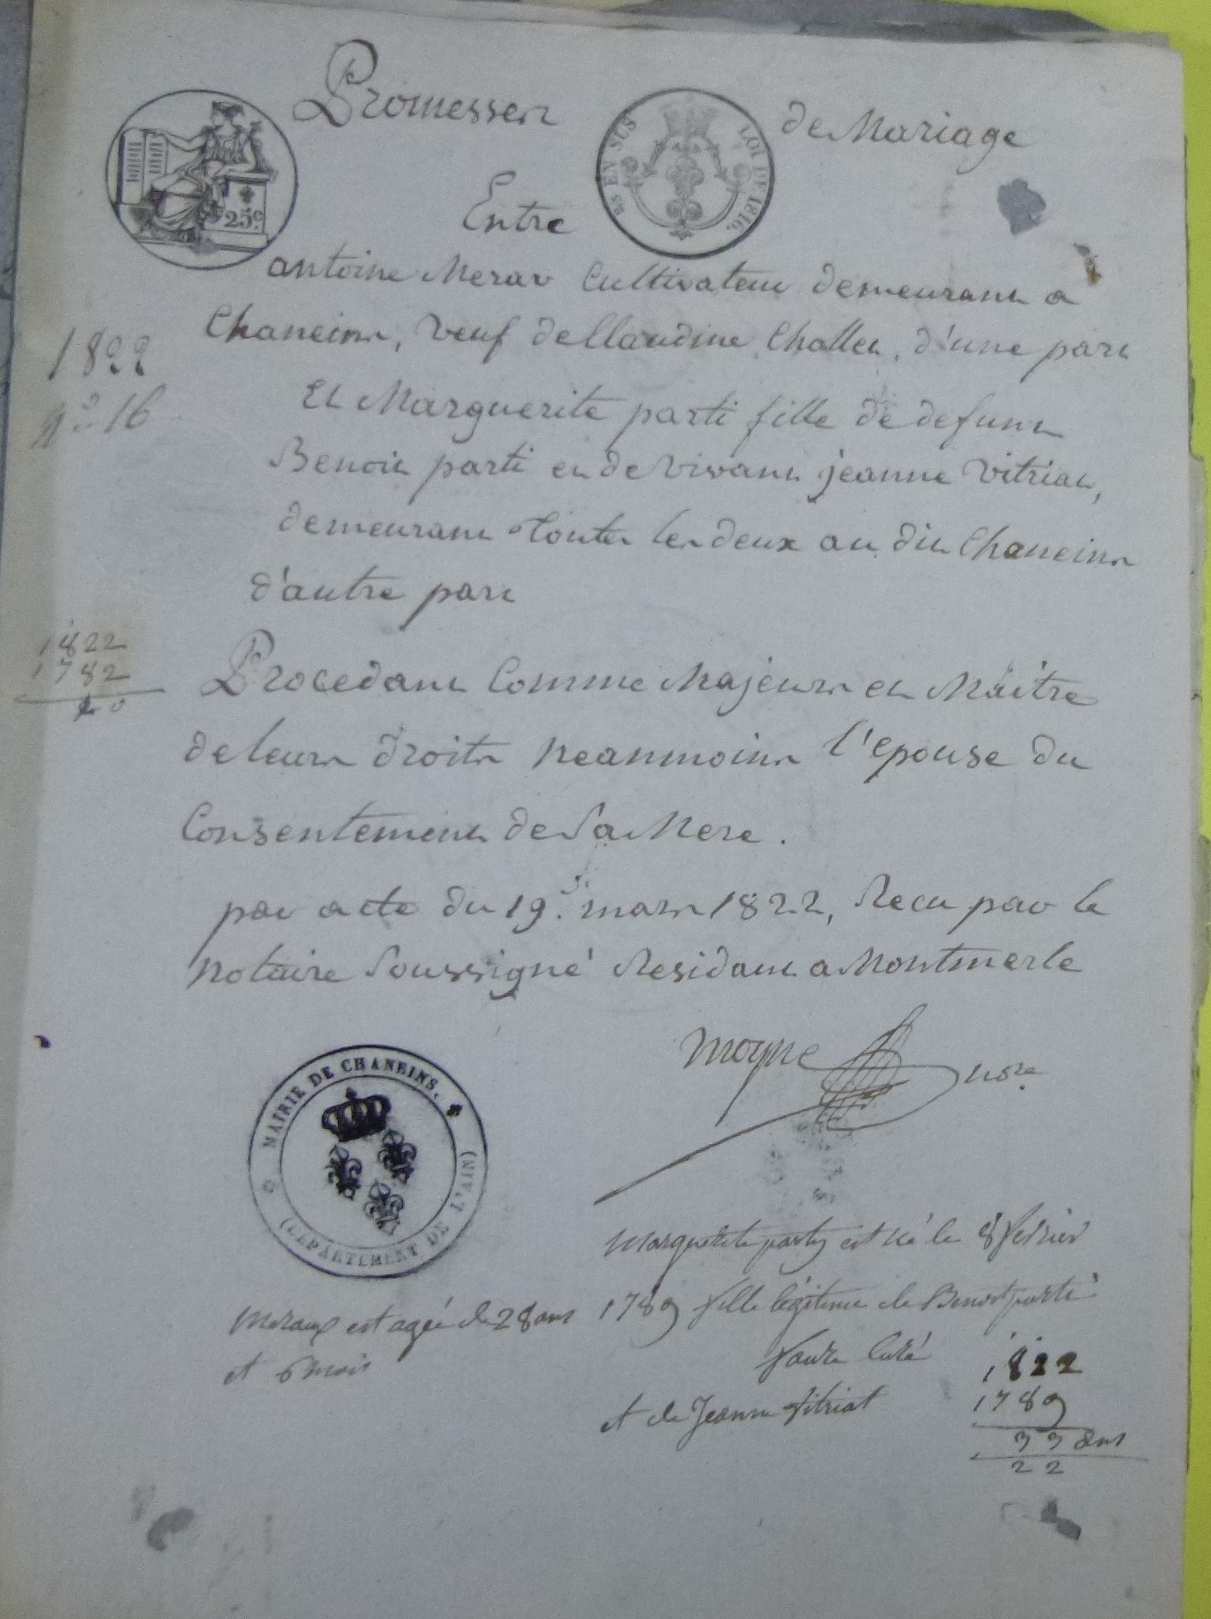 Promesses de Mariage
25c.
25 EN SUS LOI DE 1816.
Entre
antoine Merav Cultivateur demeurant a
Chaneins, veuf de Claudine Chollet, d'une part
1822
n.o 16
Et Marguerite parti fille de defunt
Benoit parti et de vivant jeanne vitriat,
demeurant toutes les deux au dit Chaneins
d'autre part
1822
1782
40
Procedant Comme Majeurs et Maitre
de leurs droits neanmoins l'epouse du
Consentement de Sa Mere.
par acte du 19. mars 1822, Recu par le
notaire Soussigné Residant a Montmerle
moyne nore
MAIRIE DE CHANEINS.
(DÉPARTEMENT DE L'AIN)
marguerite party est né le 8 fevrier
1789 fille légitime de Benoit parti
et de Jeanne Vitriat
faure Curé
Meraux est agée de 28 ans
et 6 mois
1822
1789
33 ans
22